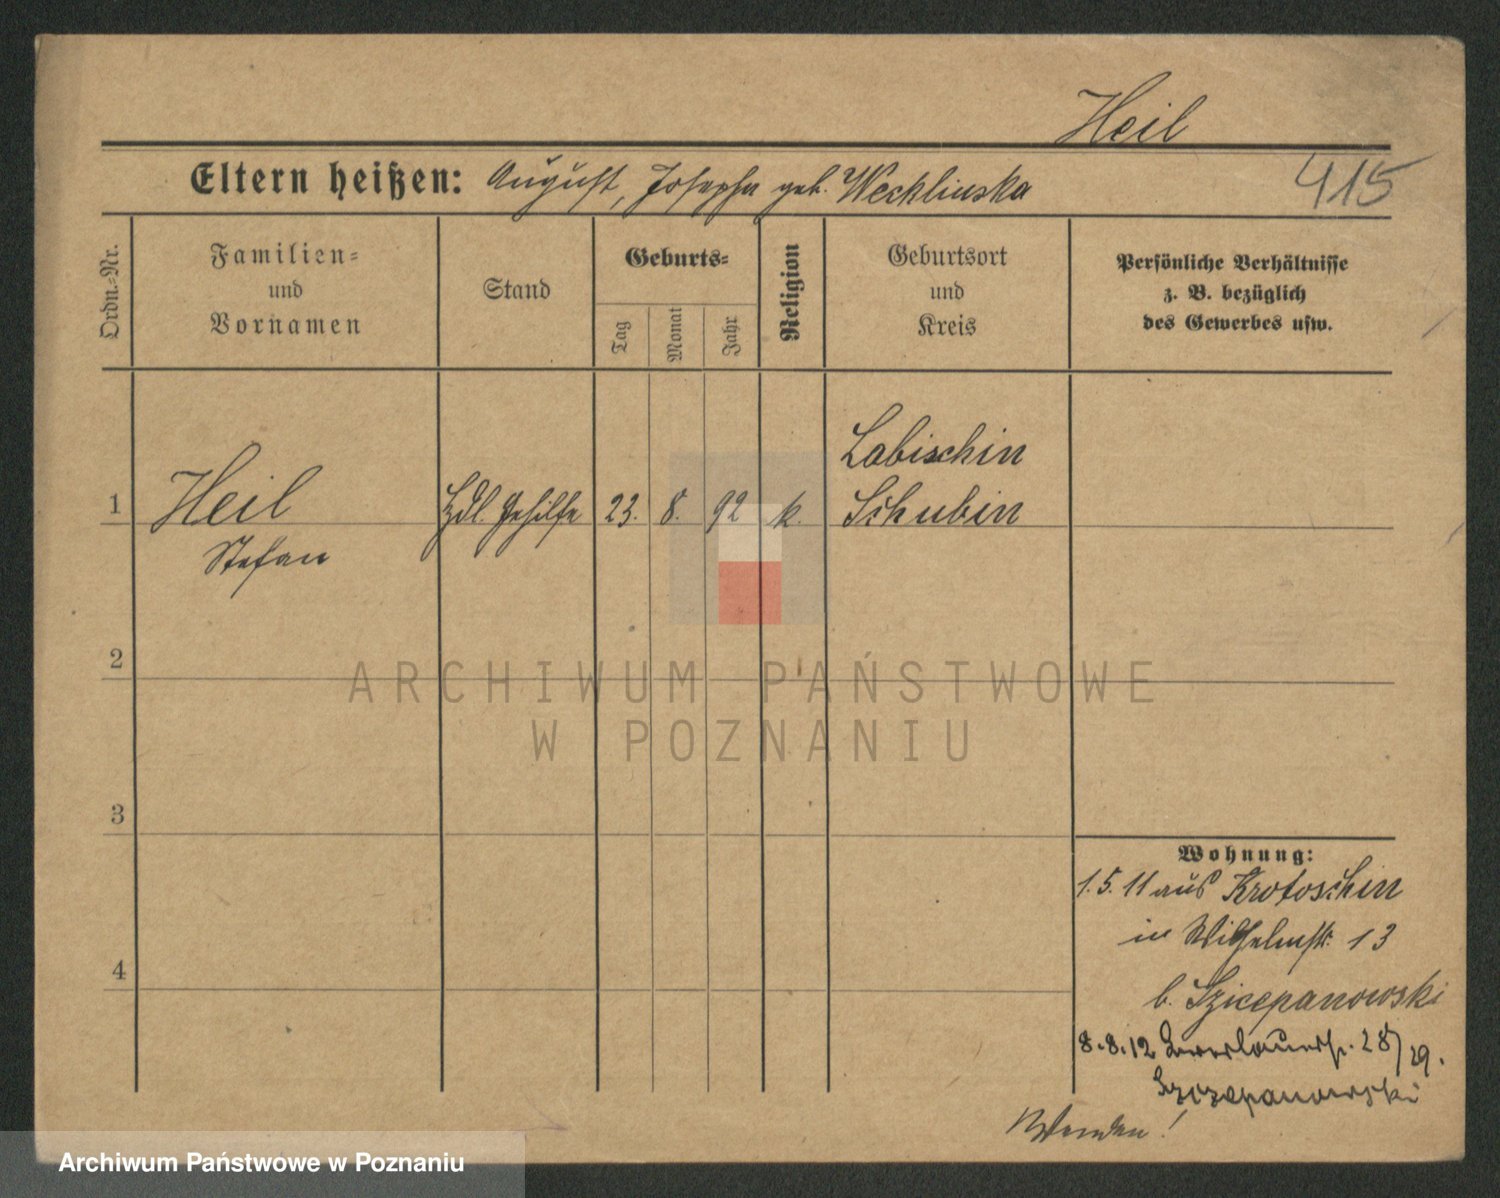 Heil
Eltern heißen: August, Josepha geb. Wecklinska
415
Ordn.-Nr.
Familien-
und
Vornamen
Stand
Geburts-
Tag
Monat
Jahr
Religion
Geburtsort
und
Kreis
Persönliche Verhältnisse
z. B. bezüglich
des Gewerbes usw.
Labischin
1 Heil Hdl. Gehilfe 23. 8. 92 k. Schubin
Stefan
2
ARCHIWUM PAŃSTWOWE
W POZNANIU
3
Wohnung:
1.5.11 aus Krotoschin
in Wilhelmstr. 13
4
b. Szicepanowski
8.8.12 28/29.
Szczepanowski
Wenden!
Archiwum Państwowe w Poznaniu